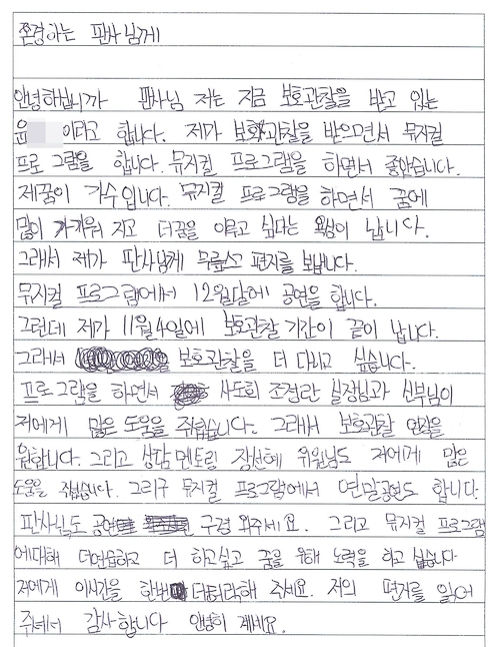 존경하는 판사님께
안녕하십니까 판사님 저는 지금 보호관찰을 받고 있는
윤 이라고 합니다. 제가 보호관찰을 받으면서 뮤지컬
프로그램을 합니다. 뮤지컬 프로그램을 하면서 좋았습니다.
제꿈이 가수입니다. 뮤지컬 프로그램을 하면서 꿈에
많이 가까워 지고 더꿈을 이루고 싶다는 욕심이 납니다.
그래서 제가 판사님께 무릅쓰고 편지를 보냅니다.
뮤지컬 프로그램에서 12월달에 공연을 합니다.
그런데 제가 11월 4일에 보호관찰 기간이 끝이 납니다.
그래서 보호관찰을 더 다니고 싶습니다.
프로그램을 하면서 사도회 조정란 실장님과 신부님이
저에게 많은 도움을 줘습니다. 그래서 보호관찰 연장을
원합니다. 그리고 상담 멘토링 장선혜 위원님도 저에게 많은
도움을 줬습니다. 그리구 뮤지컬 프로그램에서 연말공연도 합니다
판사님도 공연 구경 와주세요. 그리고 뮤지컬 프로그램
에대해 더연습하고 더 하고싶고 꿈을 위해 노력을 하고 싶습니다
저에게 이시간을 한번 더허락해 주세요. 저의 편지를 읽어
주셔서 감사합니다 안녕히 계세요.